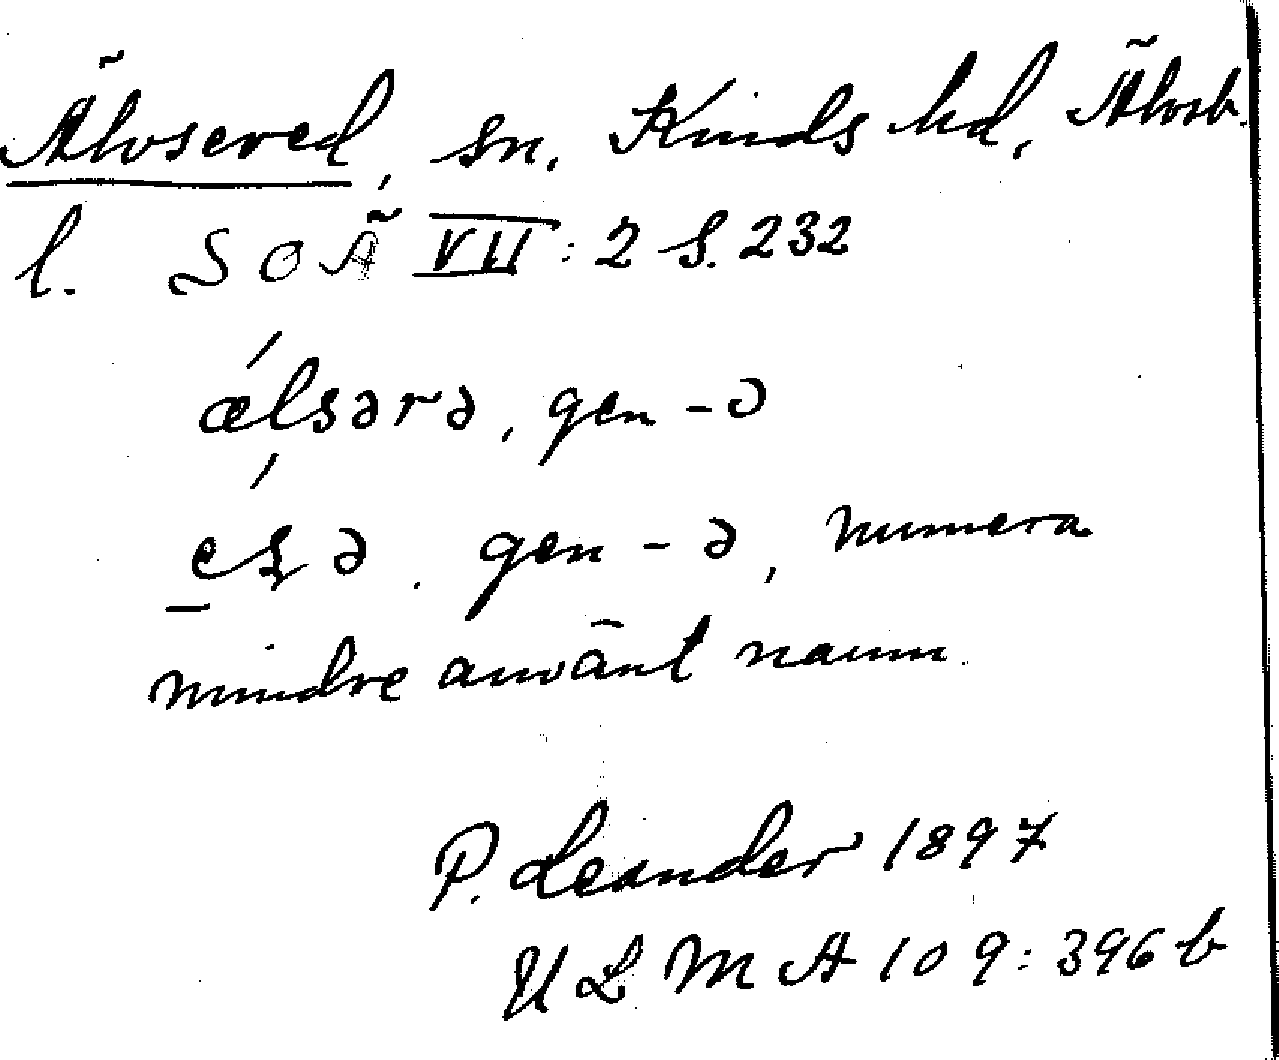 Älvsered, sn, Kinds hd, Älvsb.
l. SOÄ VII: 2 S. 232
ǽlsərə, gen -ə
gen -ə, numera
mindre använt namn.
P. Leander 1897
ULMA 109: 396 b